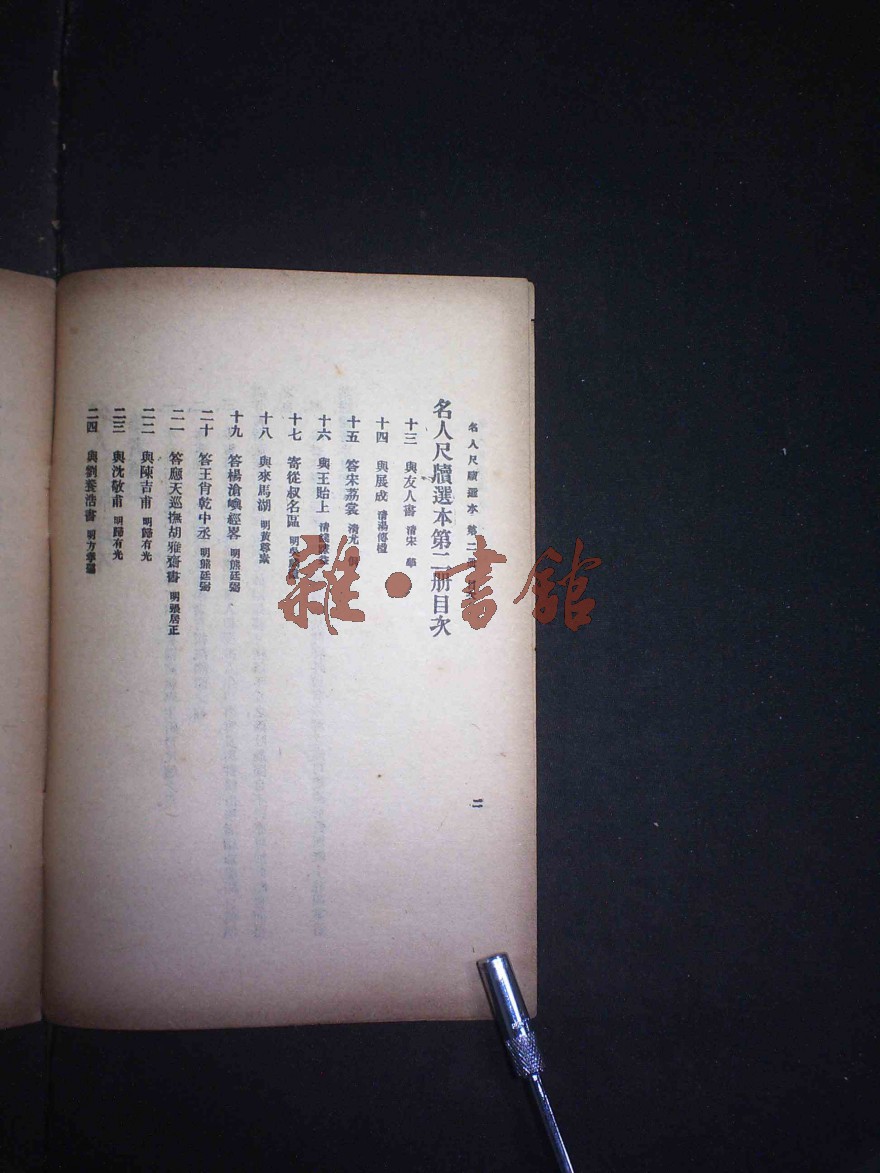 名人尺牘選本 第二冊 目次
二
名人尺牘選本第二册目次
十三 與友人書 清宋 犖
十四 與展成 清湯傳楹
十五 答宋荔裳 清尤 侗
十六 與王貽上 清
十七 寄從叔名區 明
十八 與來馬湖 明黃尊素
十九 答楊滄嶼經畧 明熊廷弼
二十 答王肖乾中丞 明熊廷弼
二一 答應天巡撫胡雅齋書 明張居正
二二 與陳吉甫 明歸有光
二三 與沈敬甫 明歸有光
二四 與劉養浩書 明方孝孺
雜·書館